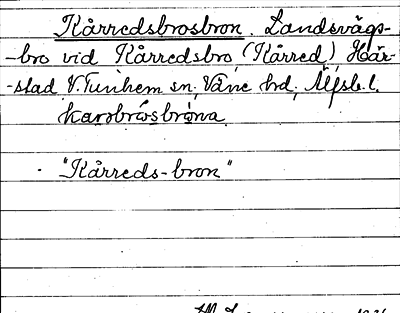 Kårredsbrosbron. Landsvägs-
-bro vid Kårredsbro, (Kårred), Här-
-stad V. Tunhem sn, Väne hd, Älfsb. l.
karsbrosbrona
"Kårreds-bron"